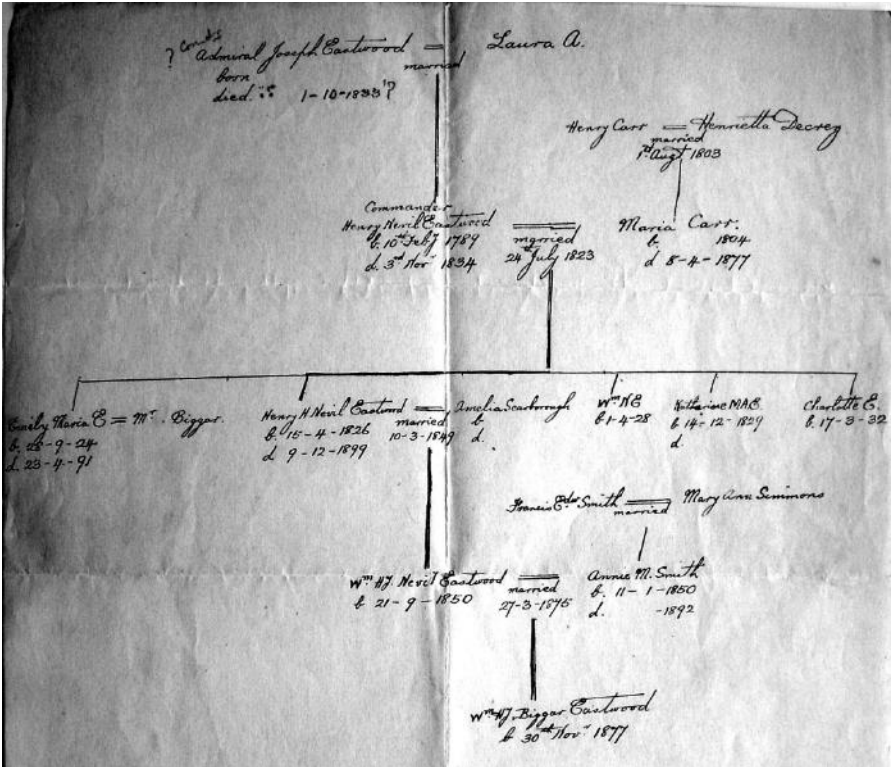 ? Comds
Admiral Joseph Eastwood = Laura A.
married
born
died 1-10-1833?
Henry Carr = Henrietta Decrey
married
1st Augt 1803
Commander
Henry Nevil Eastwood
b. 10th Feby 1789
d. 3rd Novr 1834
married
24th July 1823
Maria Carr.
b. 1804
d 5-4-1877
Emily Maria E = Mr. Biggar.
b. 28-9-24
d. 23-4-91
Henry H. Nevil Eastwood
b. 15-4-1826
d. 9-12-1899
married
10-3-1849
Amelia Scarborough
b
d.
Wm N E
b 1-4-28
Katharine M.A.E.
b 14-12-1829
d.
Charlotte E.
b. 17-3-32
Francis Edw Smith = Mary Ann Simmons
married
Wm H.J. Nevil Eastwood
b 21-9-1850
married
27-3-1875
Annie M. Smith
b. 11-1-1850
d. -1892
Wm H.J. Biggar Eastwood
b 30th Novr 1877